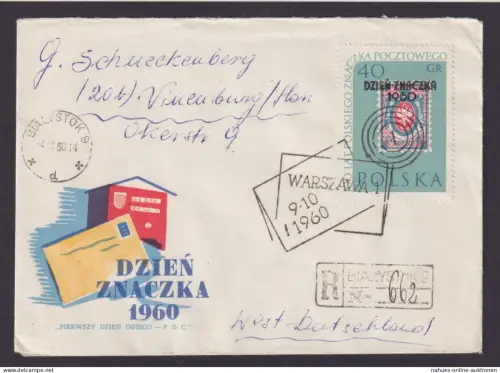 G. Schneckenberg
(20b) Vinenburg/Han
Okerstr 9
BIAŁYSTOK 9
d
100 LAT POLSKIEGO ZNACZKA POCZTOWEGO
40 GR
DZIEŃ ZNACZKA
1960
POLSKA
WARSZAWA 1
9-10
1960
DZIEŃ
ZNACZKA
1960
„PIERWSZY DZIEŃ OBIEGU — F. D. C."
R
BIAŁYSTOK 9
Nr 662
West-Deutschland
nahues-online-auktion
delcampe.net